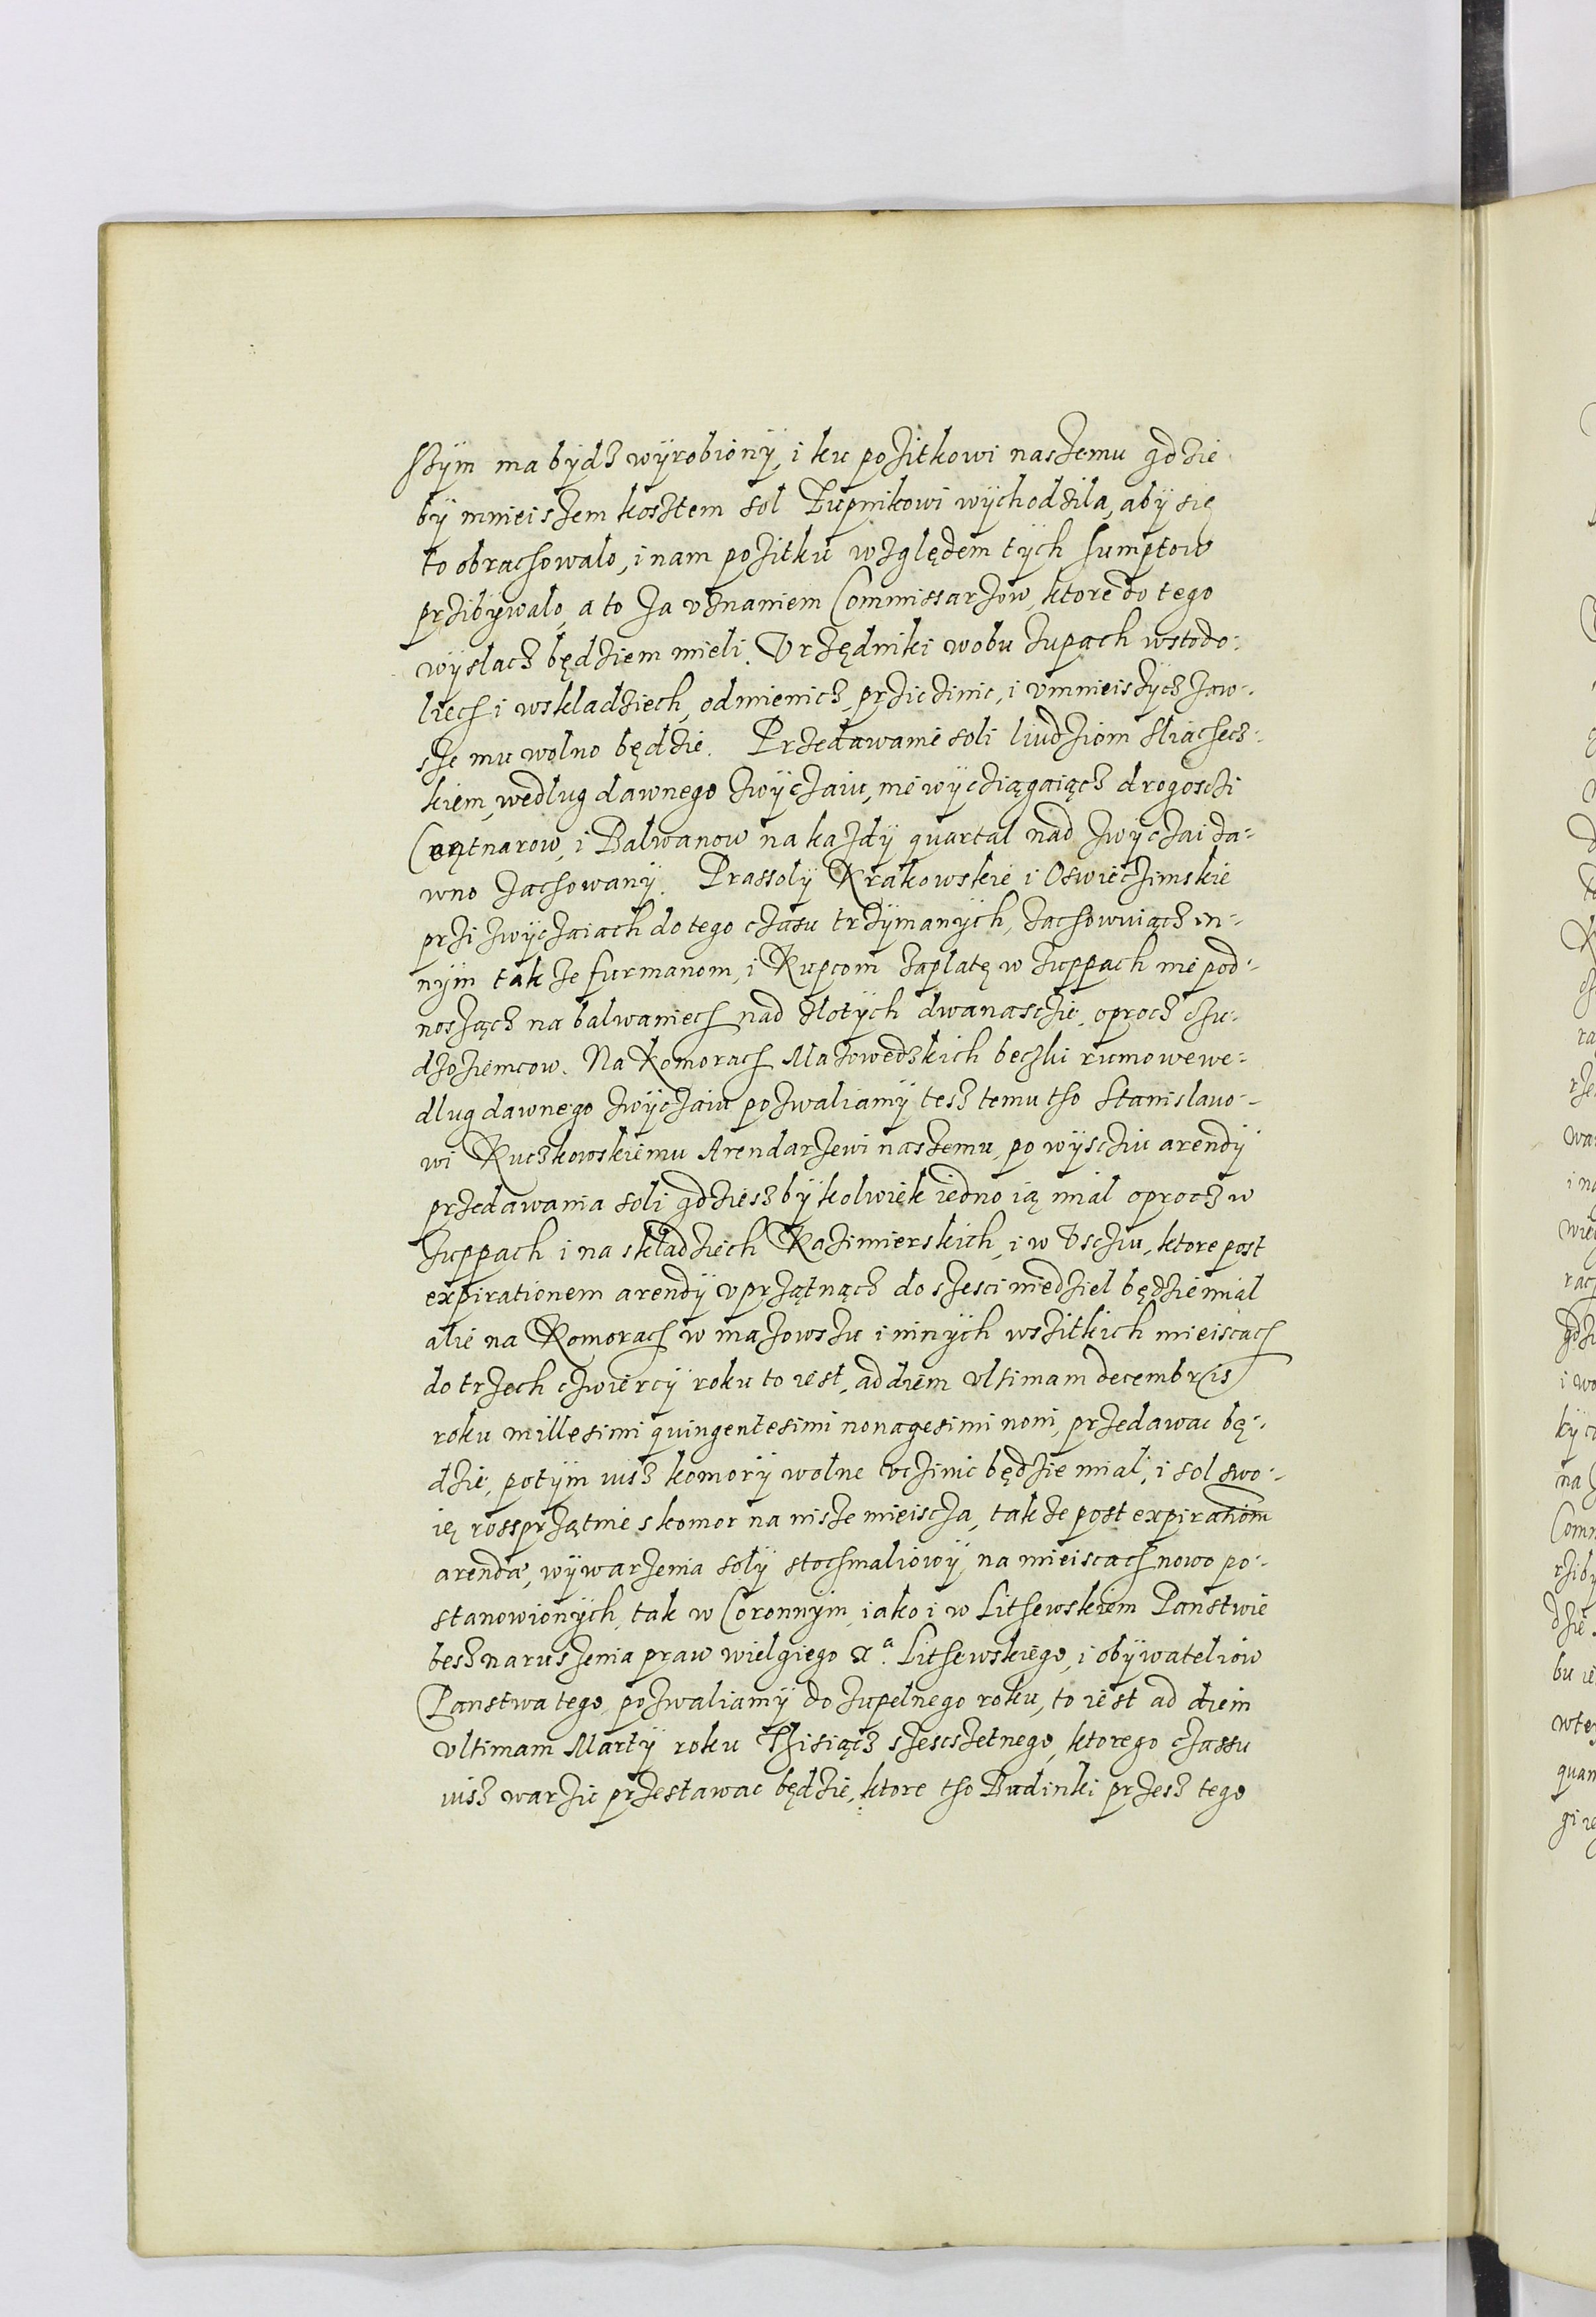 szÿm ma bÿdz wÿrobionÿ, i ku pozitkowi naszemu gdzie
bÿ mnieiszem kosztem sol Zupnikowi wÿchodzila, abÿ się
to obrachowalo, i nam pozitku względem tÿch sumptow
przibÿwalo, a to za vznaniem Commissarzow, ktore do tego
wÿslacz będziem mieli. Vrzędniki wobu zupach wstodo-
liech i wskladziech, odmienicz, prziczinic, i vmnieiszÿcz zaw-
sze mu wolno będzie. Przedawanie soli liudziom sliachecz-
kiem, wedlug dawnego zwÿczaiu, nie wÿcziągaiącz drogosczi
Centnarow, i Balwanow na kazdÿ quartal nad zwÿczai da-
wno zachowanÿ. Prassolÿ Krakowskie i Oswieczimskie
przi zwÿczaiach do tego czasu trzÿmanÿch, zachowuiącz in-
nÿm takze furmanom, i Kupcom zaplatę w zuppach nie pod-
noszącz na balwaniech nad zlotÿch dwanasczie, oprocz czu-
dzoziemcow. Na Komorach Mazowedzkich beczki rumowe we-
dlug dawnego zwÿczaiu pozwaliamÿ tesz temu tho Stanislawo-
wi Kuczkowskiemu Arendarzewi naszemu, po wÿscziu arendÿ
przedawania soli gdzieszbÿkolwiek iedno ią mial oprocz w
zuppach i na składziech Kazimierskich, i w Vscziu, ktore post
expirationem arendÿ vprzątnącz do szesci niedziel będzie mial
alie na Komorach w mazowszu i ninÿch wszitkich mieiscach
do trzech czwiercÿ roku to iest, ad diem vltimam decembris
roku millesimi quingentesimi nonagesimi noni, przedawac bę-
dzie, potÿm iusz komorÿ wolne vczinic będzie mial, i sol swo-
ię rossprzątnie s komor na insze mieiscza, takze post expirationem
arendæ, wÿwarzenia solÿ stochmaliowÿ na mieiscach nowo po-
stanowionÿch, tak w Coronnÿm, iako i w Lithewskiem Panstwie
besz naruszenia praw wielgiego xᵃ. Lithewskiego, i obÿwateliow
Panstwa tego, pozwaliamÿ do zupelnego roku, to iest ad diem
vltimam Martÿ roku Tzisiącz szescsetnego, ktorego czassu
iusz warzic przestawac będzie, ktore tho Budinki przesz tego